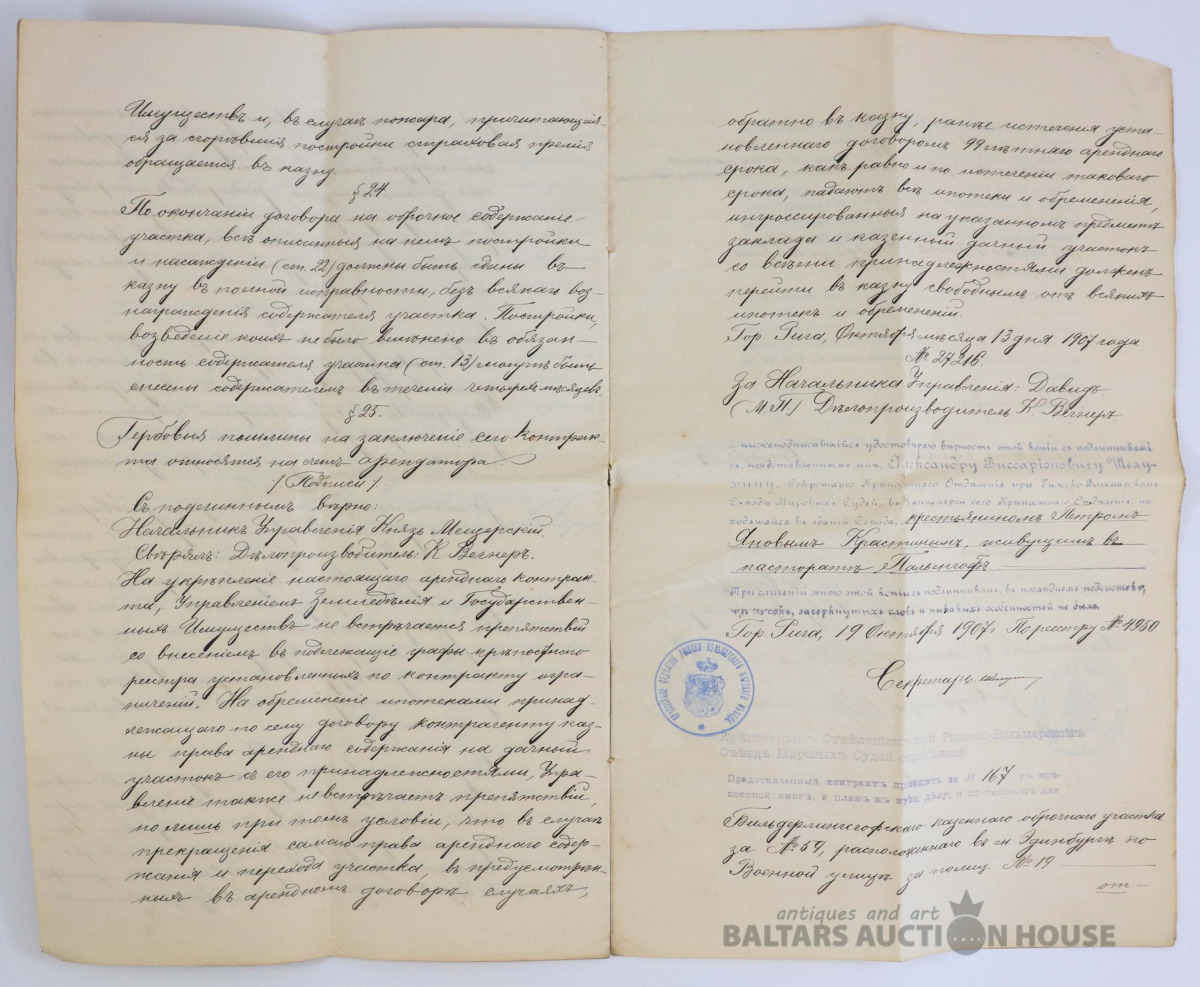 Имуществъ и, въ случаѣ пожара, причитающая-
ся за сгорѣвшія постройки страховая премія
обращается въ казну
§ 24
По окончаніи договора на оброчное содержаніе
участка, всѣ описанныя на немъ постройки
и насажденія (ст. 22) должны быть сданы въ
казну въ полной исправности, безъ всякаго воз-
награжденія содержателя участка. Постройки,
возведеніе коихъ не было вмѣнено въ обязан-
ность содержателя участка (ст. 13) могутъ быть
снесены содержателемъ въ теченіи четырехъ мѣсяцевъ.
§ 25.
Гербовыя пошлины на заключеніе сего контрак-
та относятся на счетъ арендатора.
/(Подписи)/
Съ подлиннымъ вѣрно:
Начальникъ Управленія Князь Мещерскій.
Свѣрялъ: Дѣлопроизводитель: К Вегнеръ.
На укрѣпленіе настоящаго аренднаго контрак-
та, Управленіемъ Земледѣлія и Государствен-
ныхъ Имуществъ не встрѣчается препятствій
со внесеніемъ въ подлежащіе графы крѣпостного
реестра установленныхъ по контракту огра-
ниченій. На обремененіе ипотеками принад-
лежащаго по сему договору контрагенту каз-
ны права аренднаго содержанія на дачный
участокъ съ его принадлежностями, Упра-
вленіе также не встрѣчаетъ препятствій,
но лишь при томъ условіи, что въ случаѣ
прекращенія самаго права аренднаго содер-
жанія и перехода участка, въ предусмотрѣн-
ныхъ въ арендномъ договорѣ случаяхъ,
обратно въ казну, ранѣе истеченія уста-
новленнаго договоромъ 99 лѣтняго аренднаго
срока, какъ равно и по истеченіи таковаго
срока, падаютъ всѣ ипотеки и обремененія,
ингроссированныя на указанномъ предметѣ
заклада и казенный дачный участокъ
со всѣми принадлежностями долженъ
перейти въ казну свободнымъ отъ всякихъ
ипотекъ и обремененій.
Гор. Рига, Октября мѣсяца 13 дня 1907 года
№ 27216.
За Начальника Управленія: Давидъ
(М.П.) Дѣлопроизводитель К. Вегнеръ
нижеподписавшійся удостовѣряю вѣрность этой копіи съ подлинникомъ
ея, представленнымъ мнѣ, Александру Виссаріоновичу Шелу-
хину, Секретарю Крѣпостного Отдѣленія при Рижско-Вольмарскомъ
Съѣздѣ Мировыхъ Судей, въ Канцеляріи сего Крѣпостного Отдѣленія, на-
ходящейся въ зданіи Съѣзда, крестьяниномъ Петромъ
Яновымъ Крастинымъ, живущимъ въ
пасторатѣ Пальенгофъ
При сличеніи мною этой копіи съ подлинникомъ, въ послѣднемъ подчистокъ,
приписокъ, зачеркнутыхъ словъ и никакихъ особенностей не было.
Гор. Рига, 19 Октября 1907 г. По реестру № 4950
Секретарь:
Крѣпостнымъ Отдѣленіемъ при Рижско-Вольмарскомъ
Съѣздѣ Мировыхъ Судей опредѣлено
Представленный контрактъ пріобщить за № 167 къ крѣ-
постной книгѣ, а планъ къ дѣлу, и по таковымъ для
Бильдерлингсгофскаго казеннаго оброчнаго участка
за № 59, расположеннаго въ им. Эдинбургъ по
Военной улицѣ за полиц. № 19
от-
antiques and art
BALTARS AUCTION HOUSE